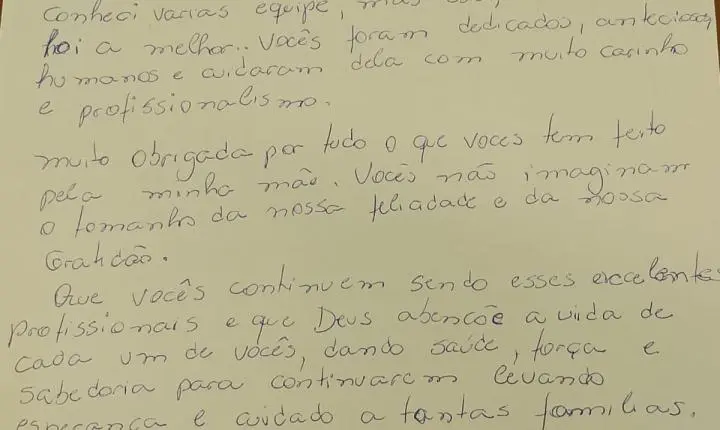 Conheci varias equipe, mas
foi a melhor.. Vocês foram dedicados, antecioso
humanos e cuidaram dela com muito carinho
e profissionalismo.
muito obrigada por tudo o que voces tem feito
pela minha mãe. Vocês não imaginam
o tomanho da nossa feliadade e da nossa
Gratidão.
Que vocês continuem sendo esses excelentes
profissionais e que Deus abençõe a vida de
cada um de vocês, dando saúde, força e
sabedoria para continuarem levando
esperança e cuidado a tantas familias.